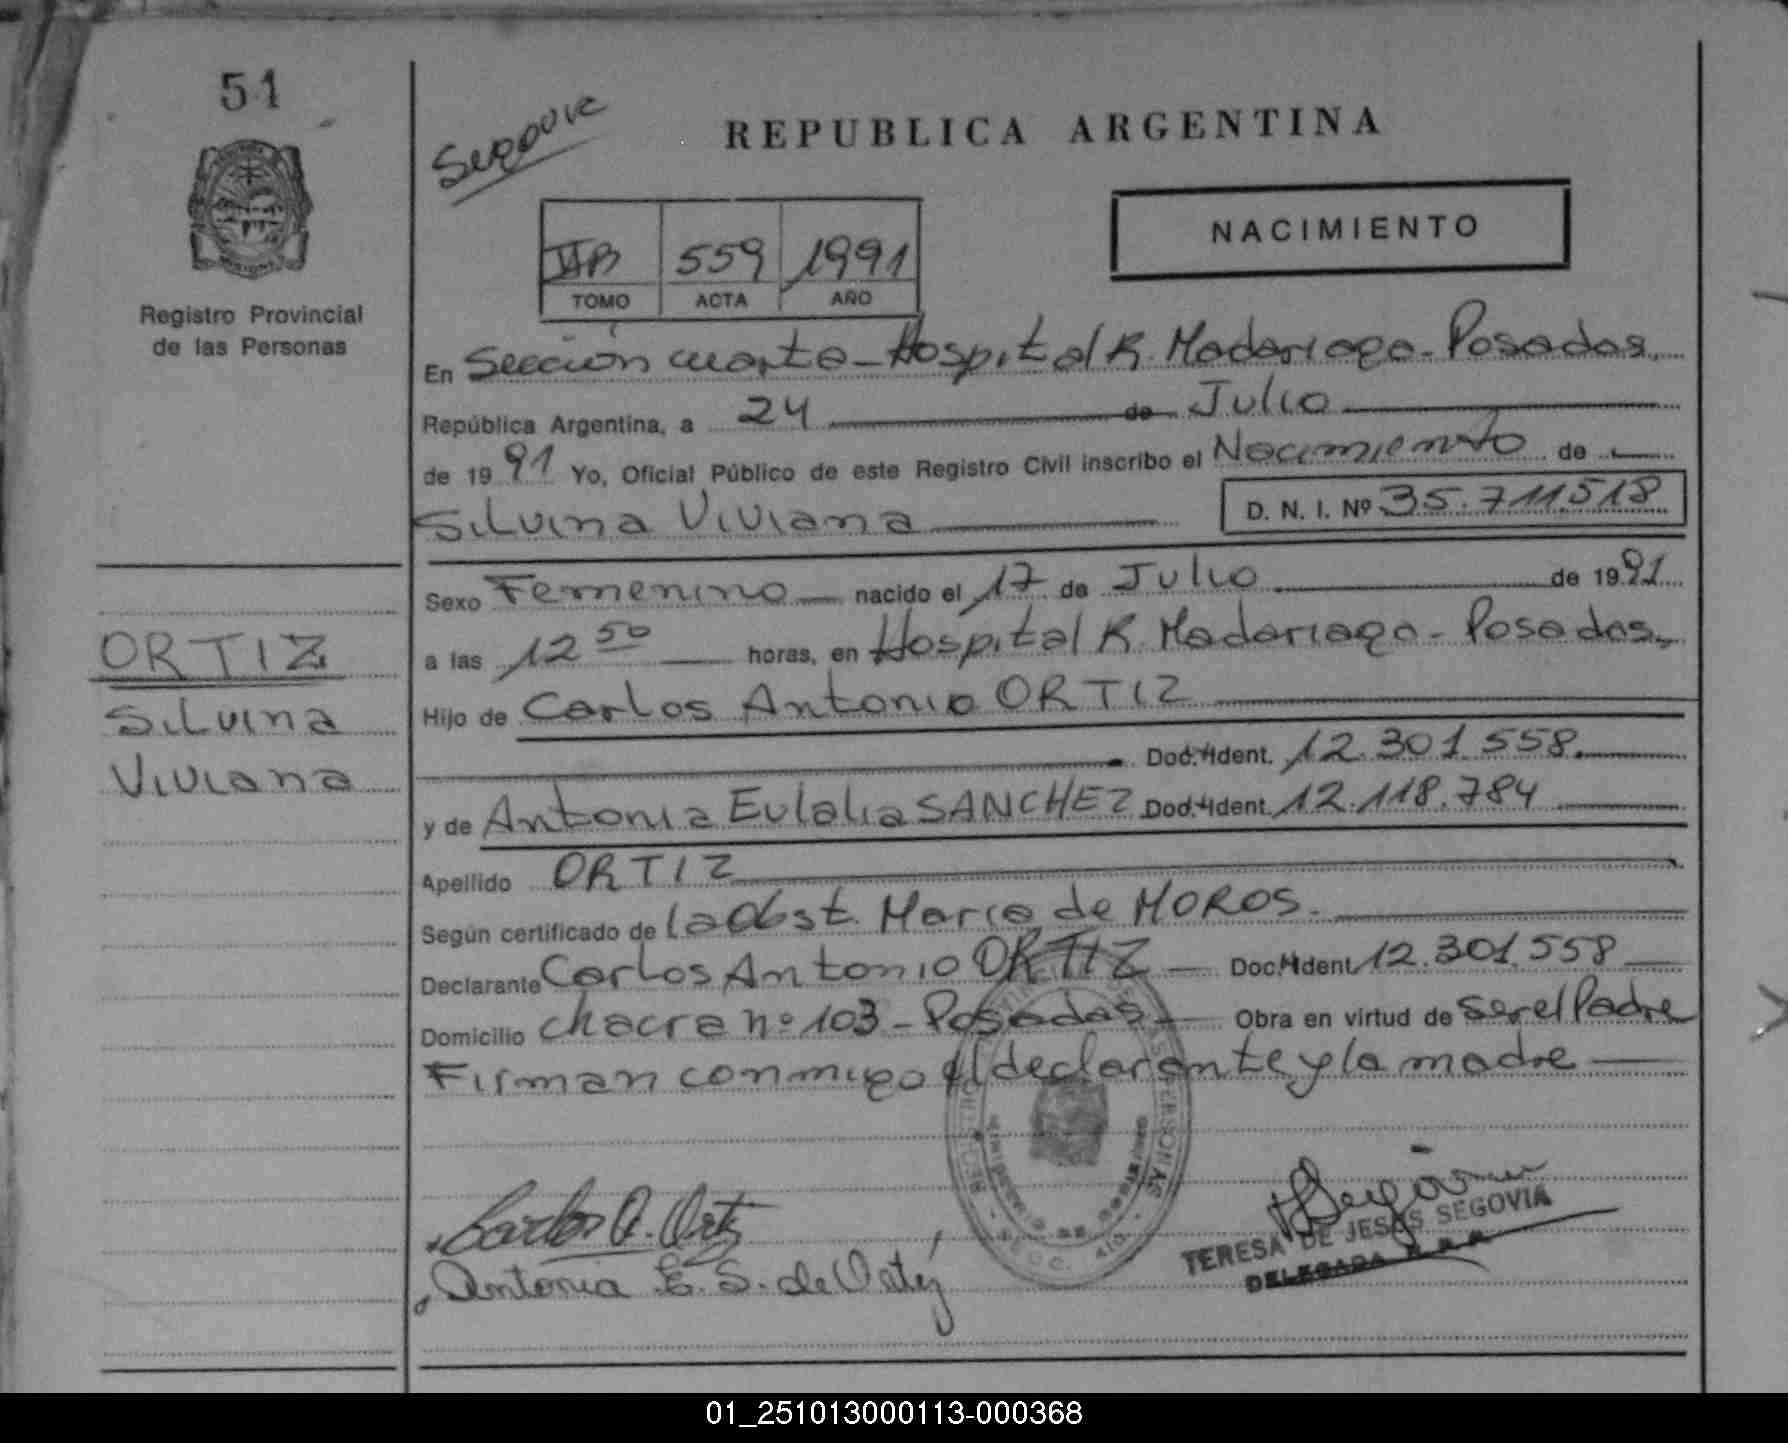 51
Segovia
REPUBLICA ARGENTINA
IIB 559 1991
TOMO ACTA AÑO
NACIMIENTO
Registro Provincial
de las Personas
En Sección cuarta - Hospital R. Madariaga - Posadas.
República Argentina, a 24 de Julio
de 1991 Yo, Oficial Público de este Registro Civil inscribo el Nacimiento de
Silvina Viviana D. N. I. Nº 35.711.518
Sexo Femenino nacido el 17 de Julio de 1991
a las 12 50 horas, en Hospital R. Madariaga - Posadas.
Hijo de Carlos Antonio ORTIZ
Doc. Ident. 12.301.558.
y de Antonia Eulalia SANCHEZ Doc. Ident. 12.118.784
Apellido ORTIZ
Según certificado de la Obst. Maria de MOROS.
Declarante Carlos Antonio ORTIZ Doc. Ident. 12.301.558
Domicilio chacra nº 103 - Posadas Obra en virtud de ser el Padre
Firman conmigo el declarante y la madre
ORTIZ
Silvina
Viviana
Carlos A. Ortiz
Antonia E. S. de Ortiz
Segovia
TERESA DE JESUS SEGOVIA
DELEGADA
01_251013000113-000368